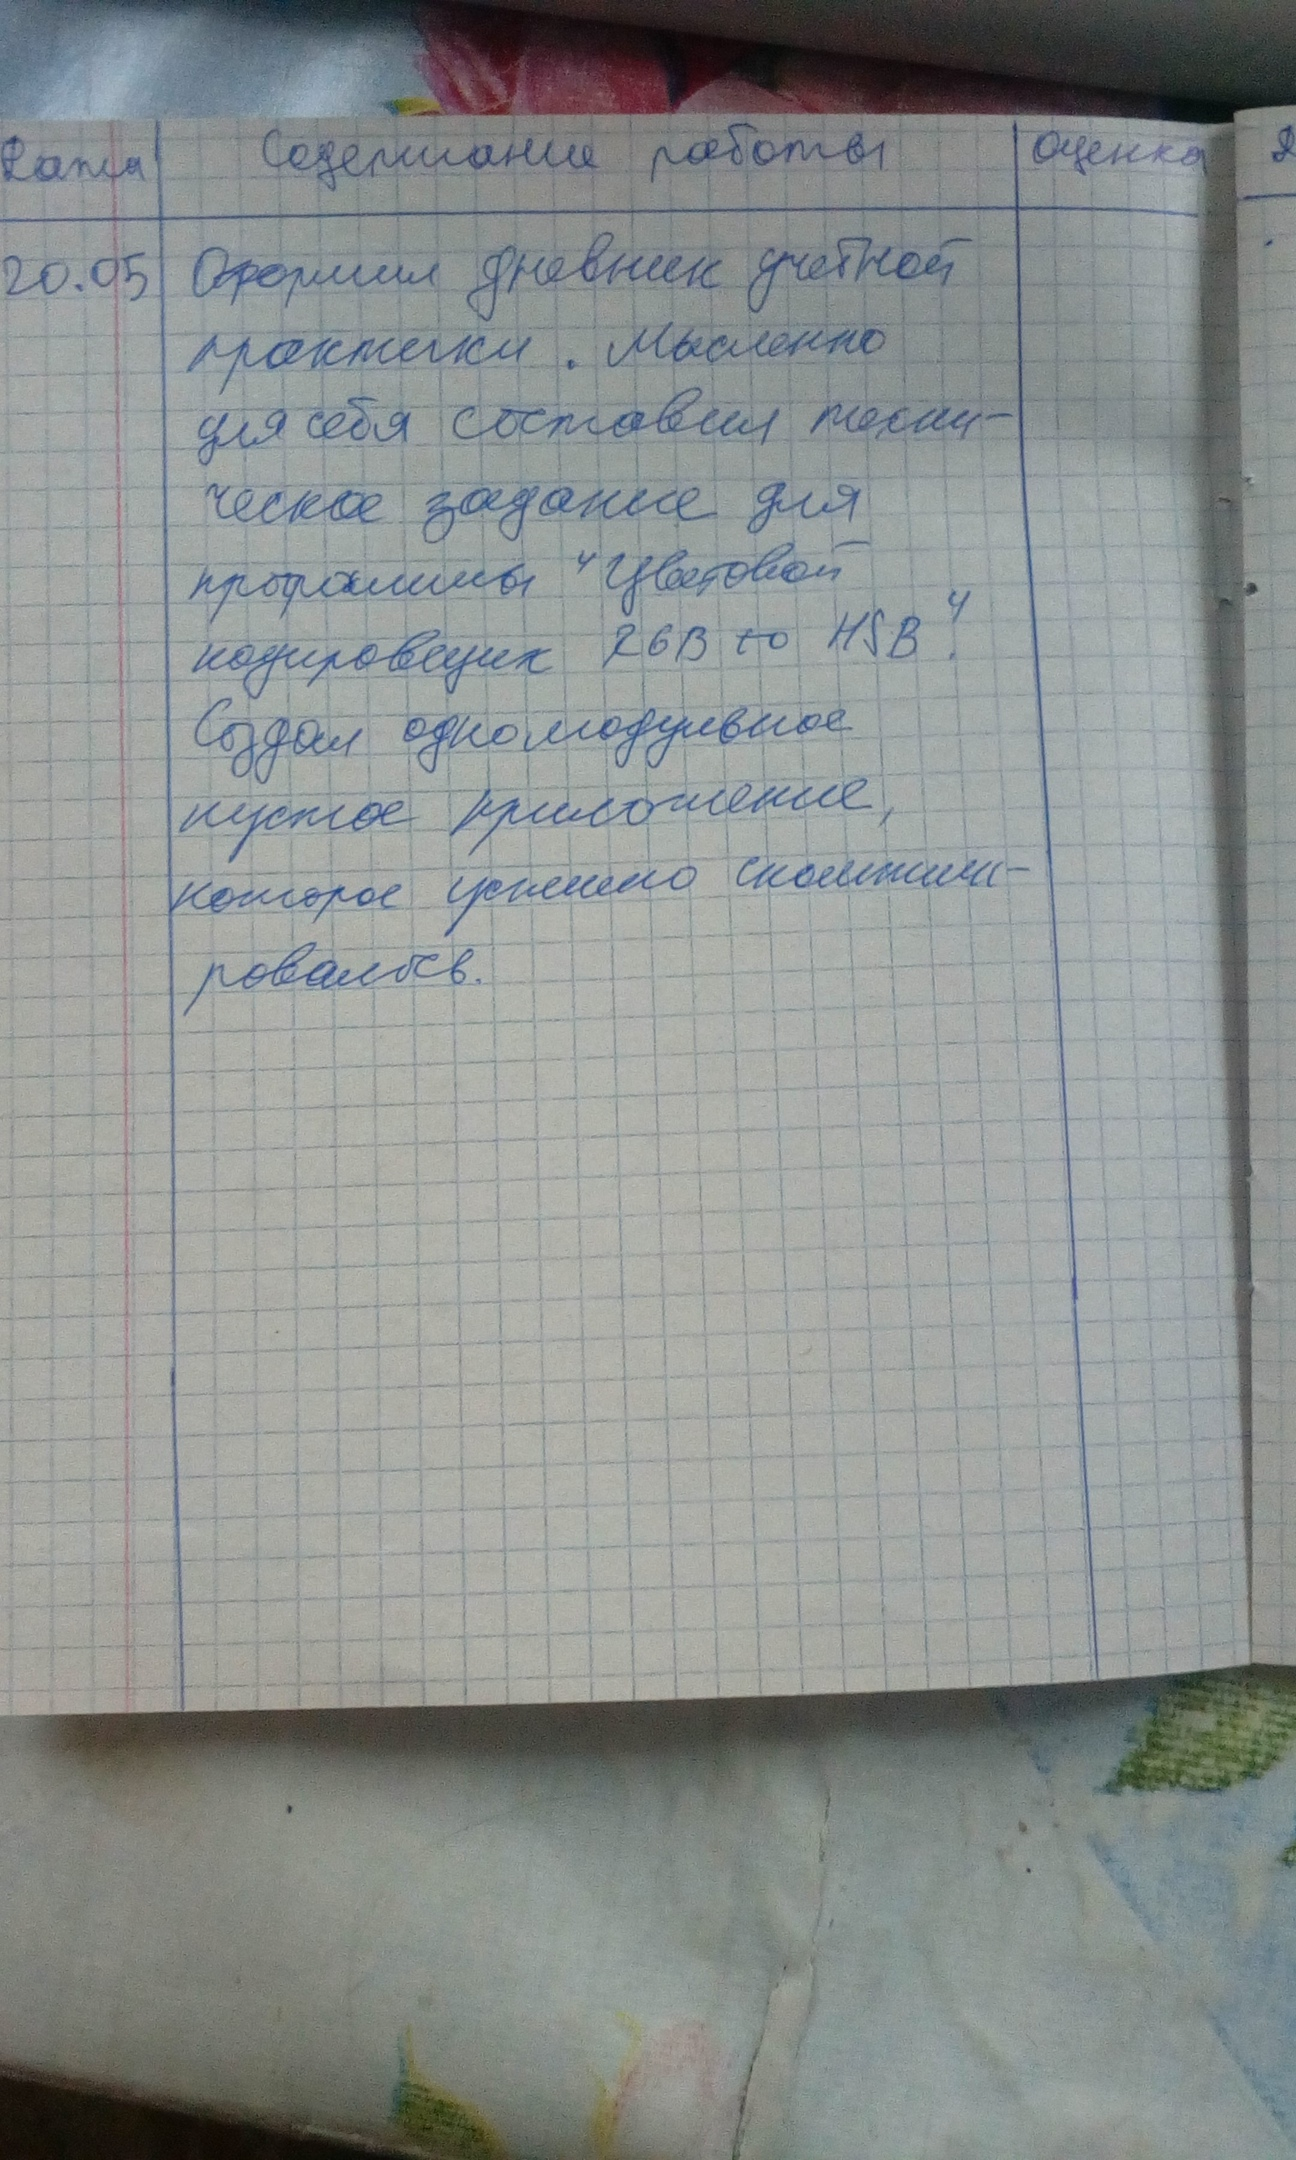 Дата Содержание работы оценка
20.05 Оформил дневник учебной
практики. Мысленно
для себя составил техни-
ческое задание для
программы "Цветовой
кодировщик RGB to HSB".
Создал одномодульное
пустое приложение,
которое успешно скомпили-
ровалось.